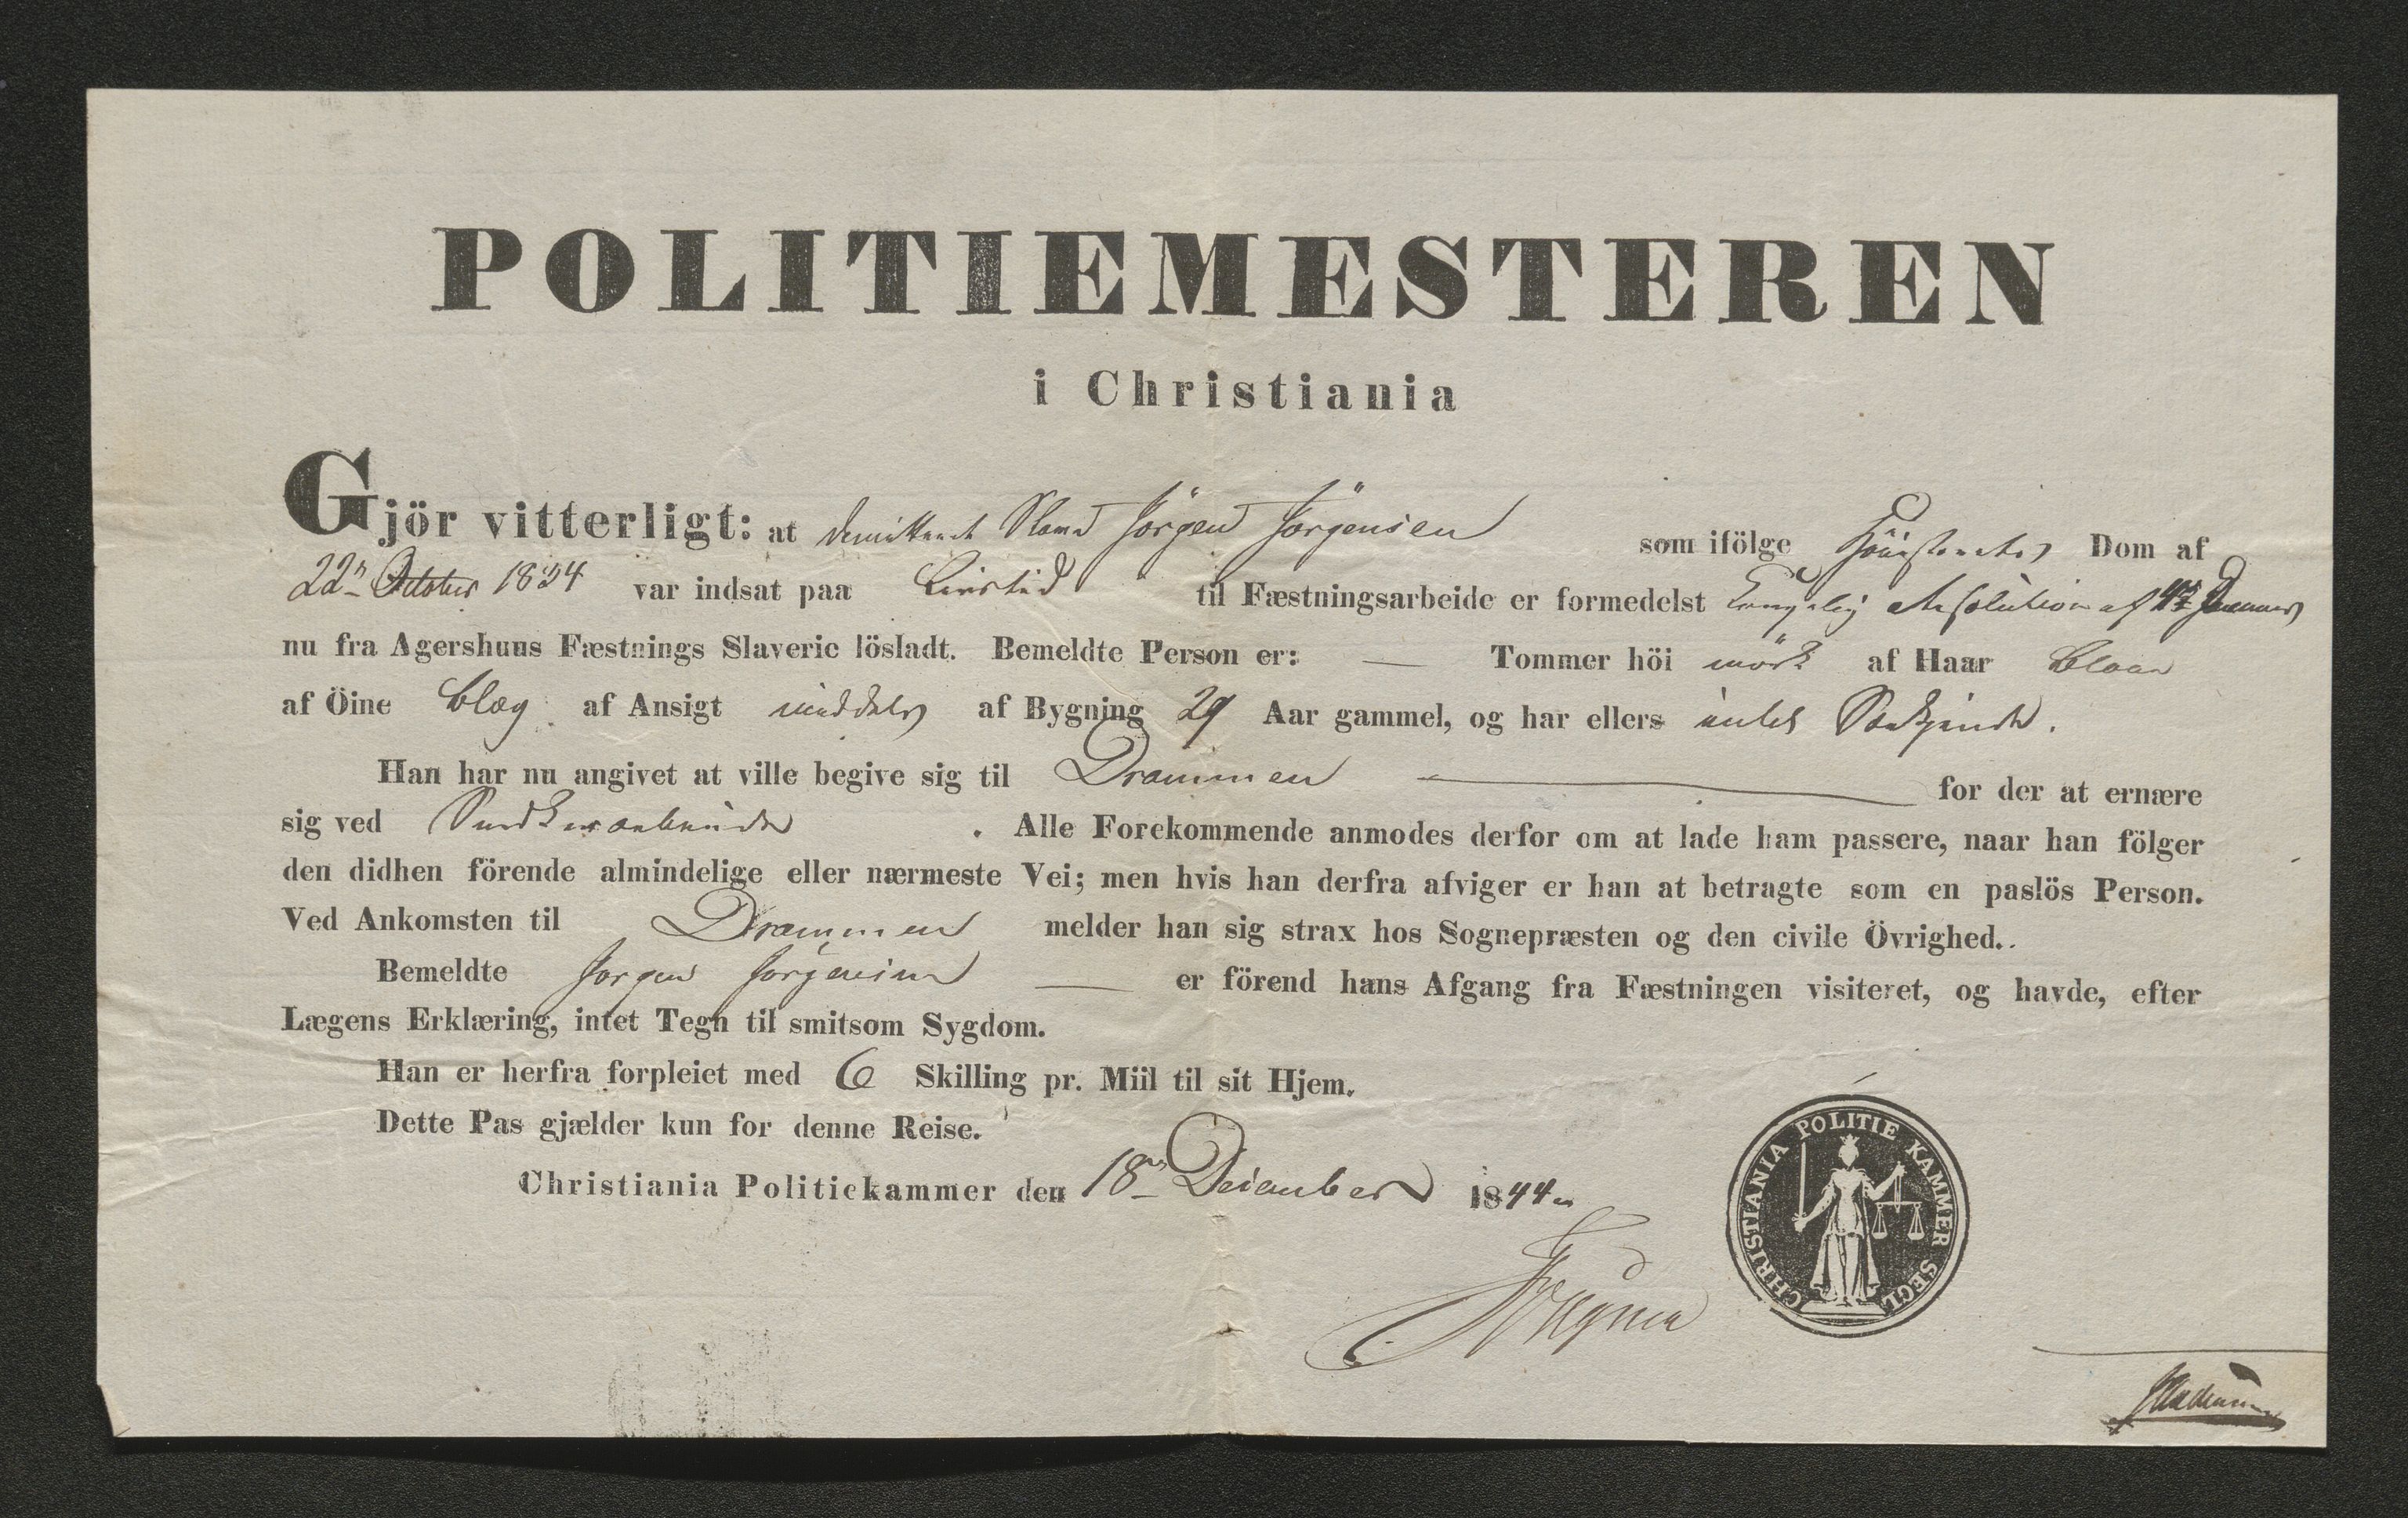 POLITIEMESTEREN
i Christiania
Gjör vitterligt: at demitteret Slave Jörgen Jörgensen som ifölge Höiesterets Dom af
22de October 1834 var indsat paa Livstid til Fæstningsarbeide er formedelst Kongelig Resolution af
nu fra Agershuus Fæstnings Slaverie lösladt. Bemeldte Person er: — Tommer höi mörk af Haar blaae
af Öine bleg af Ansigt middels af Bygning 29 Aar gammel, og har ellers intet Særkjende.
Han har nu angivet at ville begive sig til Drammen — for der at ernære
sig ved Snedkerarbeide . Alle Forekommende anmodes derfor om at lade ham passere, naar han fölger
den didhen förende almindelige eller nærmeste Vei; men hvis han derfra afviger er han at betragte som en paslös Person.
Ved Ankomsten til Drammen melder han sig strax hos Sognepræsten og den civile Övrighed..
Bemeldte Jörgen Jörgensen — er förend hans Afgang fra Fæstningen visiteret, og havde, efter
Lægens Erklæring, intet Tegn til smitsom Sygdom.
Han er herfra forpleiet med 6 Skilling pr. Miil til sit Hjem.
Dette Pas gjælder kun for denne Reise.
Christiania Politiekammer den 18de December 1844
CHRISTIANIA POLITIE KAMMER SEGL